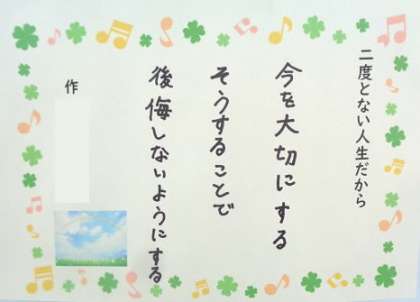 二度とない人生だから
今を大切にする
そうすることで
後悔しないようにする
作